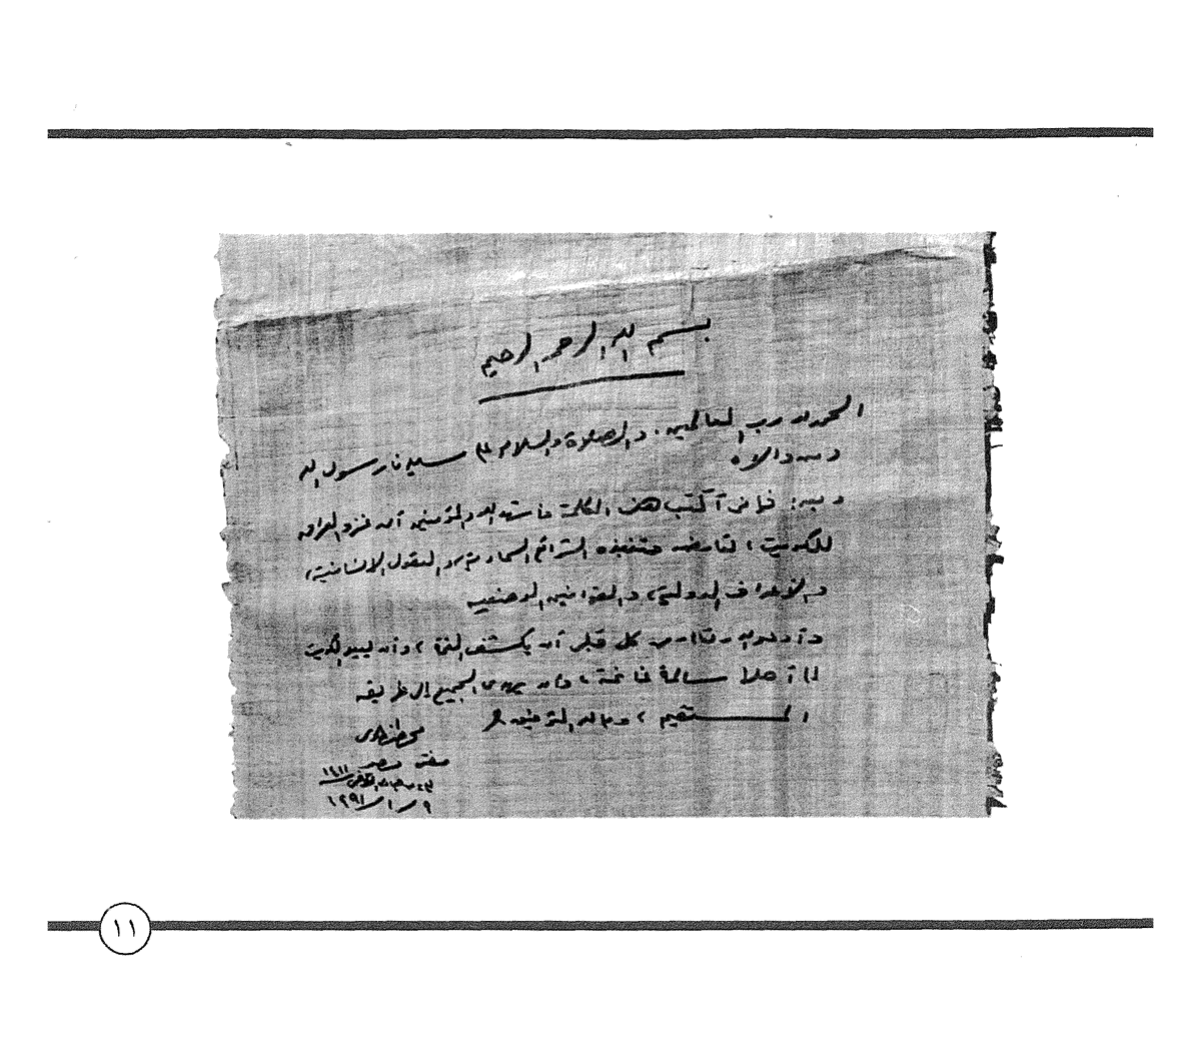 بسم الله الرحمن الرحيم
الحمد لله رب العالمين. والصلاة والسلام على سيدنا رسول الله
ومن والاه
وبعد: فإنى أكتب هذه الكلمة مستشهدا الله والمؤمنين أن غزو العراق
للكويت، تعارضه وتنبذه الشرائع السماوية، والعقول الإنسانية،
والأعراف الدولية، والقوانين الوضعية
وأدعو الله من كل قلبى أن يكشف الغمة، وأن يعيد الكويت
إلى أهلها سالمة غانمة، وأن يهدى الجميع إلى طريقه
المستقيم، وبالله التوفيق
محمد طنطاوى
مفتى مصر
١٤١١
٩ / ١ / ١٩٩١
١١